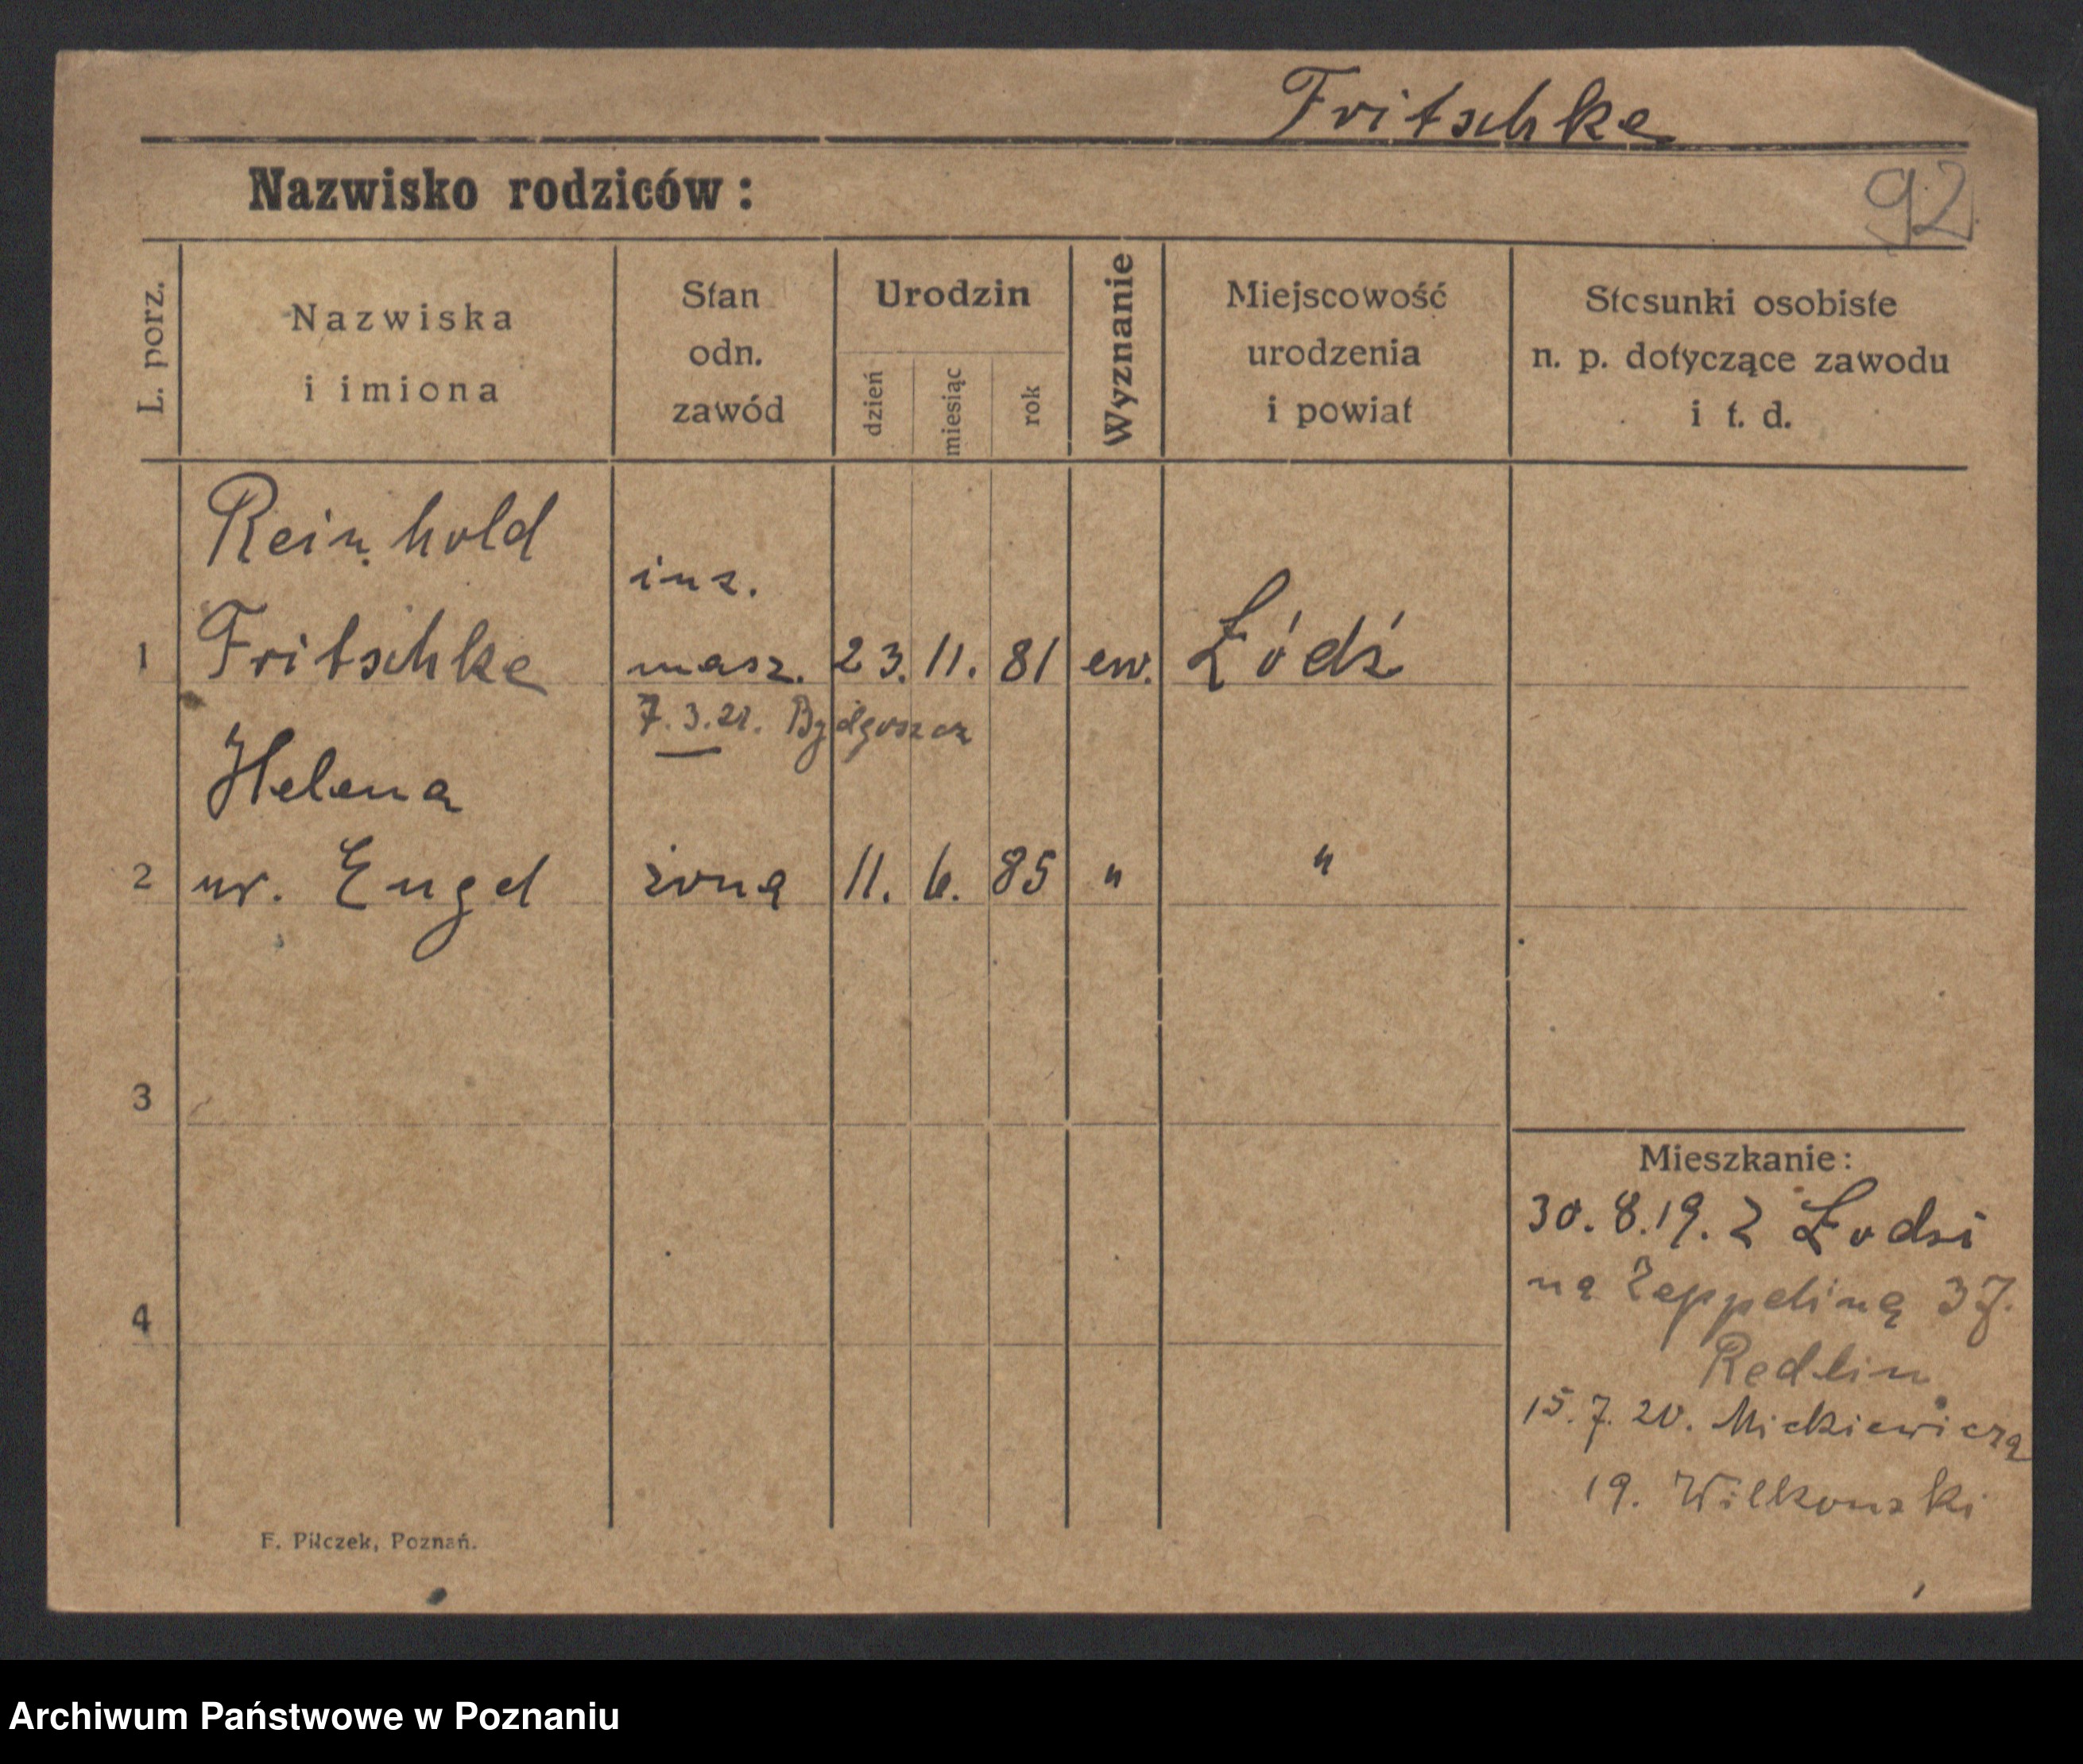 Fritschke
Nazwisko rodziców:
92
L. porz.
Nazwiska
i imiona
Stan
odn.
zawód
Urodzin
dzień
miesiąc
rok
Wyznanie
Miejscowość
urodzenia
i powiat
Stosunki osobiste
n. p. dotyczące zawodu
i t. d.
Reinhold
inz.
1 Fritschke masz. 23. 11. 81 ew. Łódź
7. 3. 21. Bydgoszcz
Helena
2 ur. Engel żona 11. 6. 85 " "
3
Mieszkanie:
30. 8. 19. z Łodzi
na Zeppelina 37.
4
Redlin
15. 7. 20. Mickiewicza
19. Wilkonski
F. Pilczek, Poznań.
Archiwum Państwowe w Poznaniu